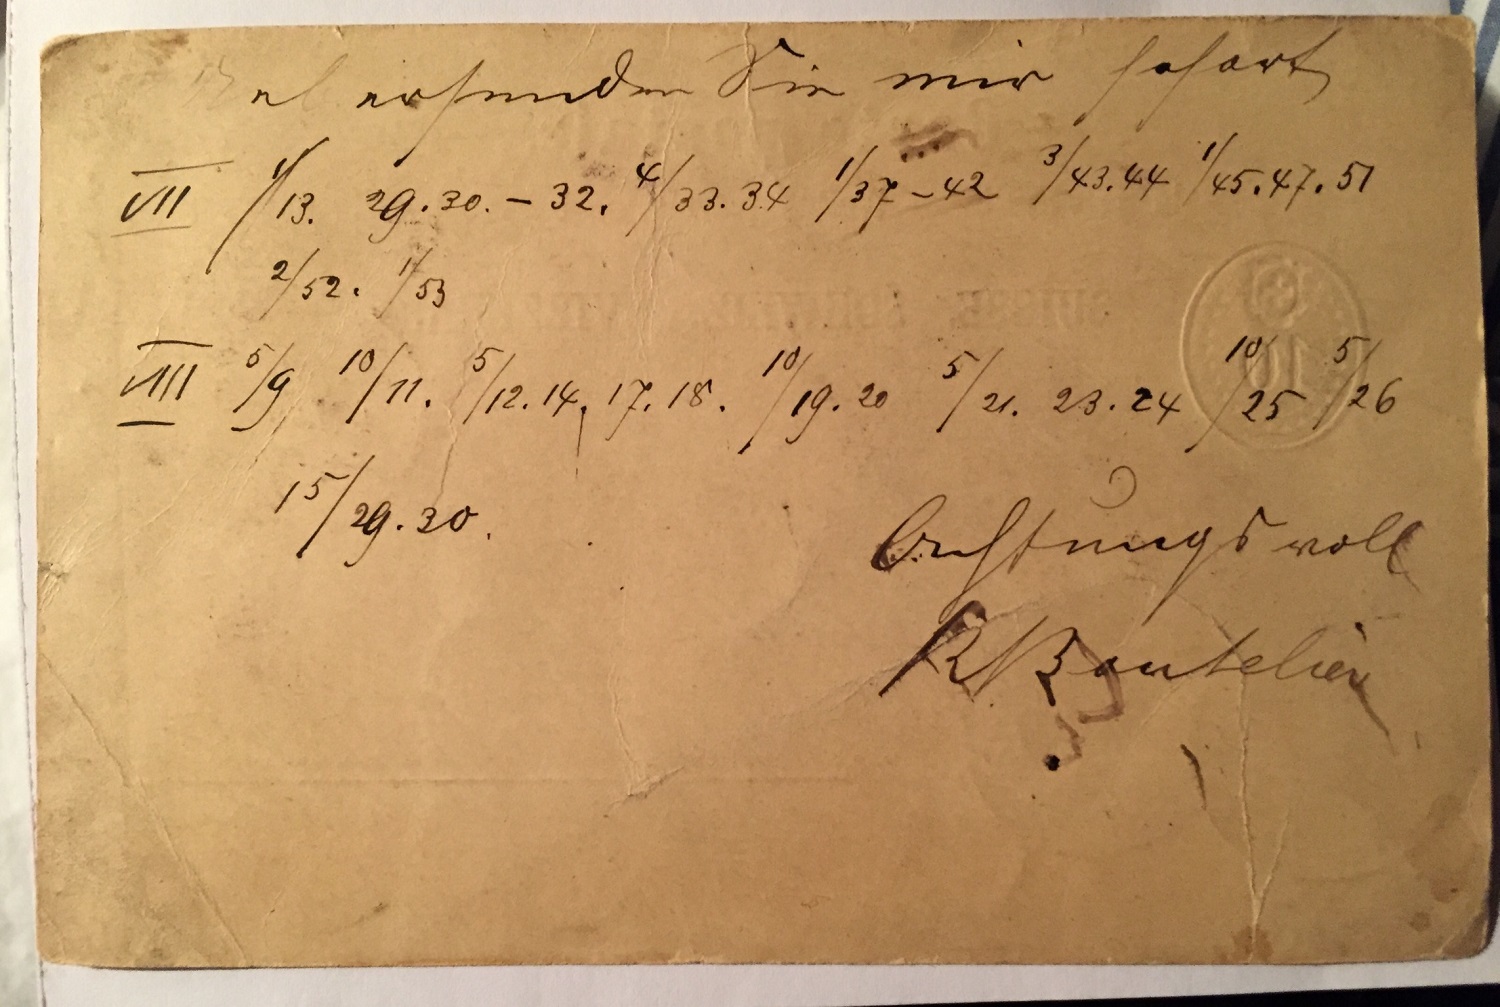 übersenden Sie mir sofort
VII 1/13. 29.30. – 32. 4/33.34 1/37–42 3/43.44 1/45.47.51
2/52. 1/53
VIII 5/9 10/11. 5/12.14. 17.18. 10/19.20 5/21. 23.24 10/25 5/26
15/29.30.
Achtungsvoll